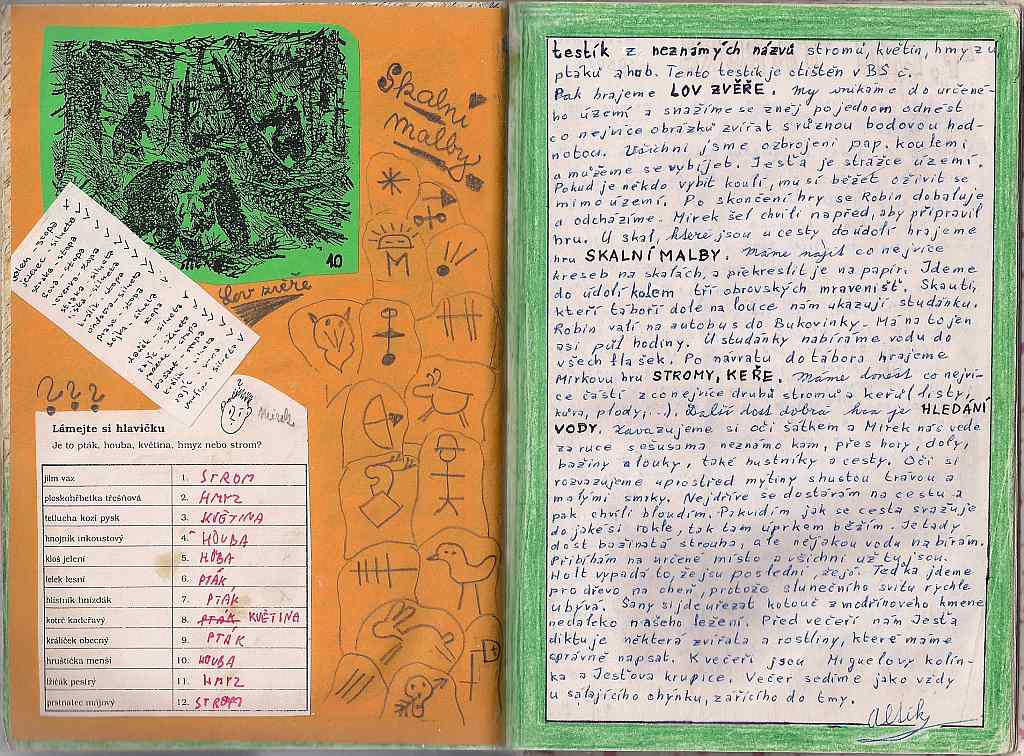 Skalní
malby
10
Lov zvěře
? ? ?
Mirek
Lámejte si hlavičku
Je to pták, houba, květina, hmyz nebo strom?
jilm vaz 1. STROM
ploskohřbetka třešňová 2. HMYZ
tetlucha kozí pysk 3. KVĚTINA
hnojník inkoustový 4. HOUBA
kloš jelení 5. HOUBA
lelek lesní 6. PTÁK
hlístník hnízdák 7. PTAK
kotrč kadeřavý 8. PTÁK KVĚTINA
králíček obecný 9. PTÁK
hruštička menší 10. HOUBA
lžičák pestrý 11. HMYZ
prstnatec májový 12. STROM
testík z neznámých názvů stromů, květin, hmyzu
ptáků a hub. Tento testík je otištěn v BS č.
Pak hrajeme LOV ZVĚŘE. My vnikáme do určené-
ho území a snažíme se z něj po jednom odnést
co nejvíce obrázků zvířat s různou bodovou hod-
notou. Všichni jsme ozbrojeni pap. koulemi
a můžeme se vybíjet. Jesťa je strážce území.
Pokud je někdo vybit koulí, musí běžet oživit se
mimo území. Po skončení hry se Robin dobaluje
a odcházíme. Mirek šel chvíli napřed, aby připravil
hru. U skal, které jsou u cesty do údolí hrajeme
hru SKALNÍ MALBY. Máme najít co nejvíce
kreseb na skalách, a překreslit je na papír. Jdeme
do údolí kolem tří obrovských mravenišť. Skauti,
kteří táboří dole na louce nám ukazují studánku.
Robin valí na autobus do Bukovinky. Má na to jen
asi půl hodiny. U studánky nabíráme vodu do
všech flašek. Po návratu do tábora hrajeme
Mirkovu hru STROMY, KEŘE. Máme donést co nejví-
ce částí z co nejvíce druhů stromů a keřů (listy,
kůra, plody,...). Další dost dobrá hra je HLEDÁNÍ
VODY. Zavazujeme si oči šátkem a Mirek nás vede
za ruce se šusama neznámo kam, přes hory, doly,
bažiny a louky, také hustníky a cesty. Oči si
rozvazujeme uprostřed mýtiny s hustou trávou a
malými smrky. Nejdříve se dostávám na cestu a
pak chvíli bloudím. Pak vidím jak se cesta svažuje
do jakési rokle, tak tam úprkem běžím. Je tady
dost bažinatá strouha, ale nějakou vodu nabírám.
Přibíhám na určené místo a všichni už tu jsou.
Holt vypadá to, že jsu poslední, ze jó. Teďka jdeme
pro dřevo na oheň, protože slunečního svitu rychle
ubývá. Šany si jde uřezat kotouč z modřínového kmene
nedaleko našeho ležení. Před večeří nám Jesťa
diktuje některá zvířata a rostliny, které máme
správně napsat. K večeři jsou Miguelovy kolín-
ka a Jesťova krupice. Večer sedíme jako vždy
u sálajícího ohýnku, zařícího do tmy.